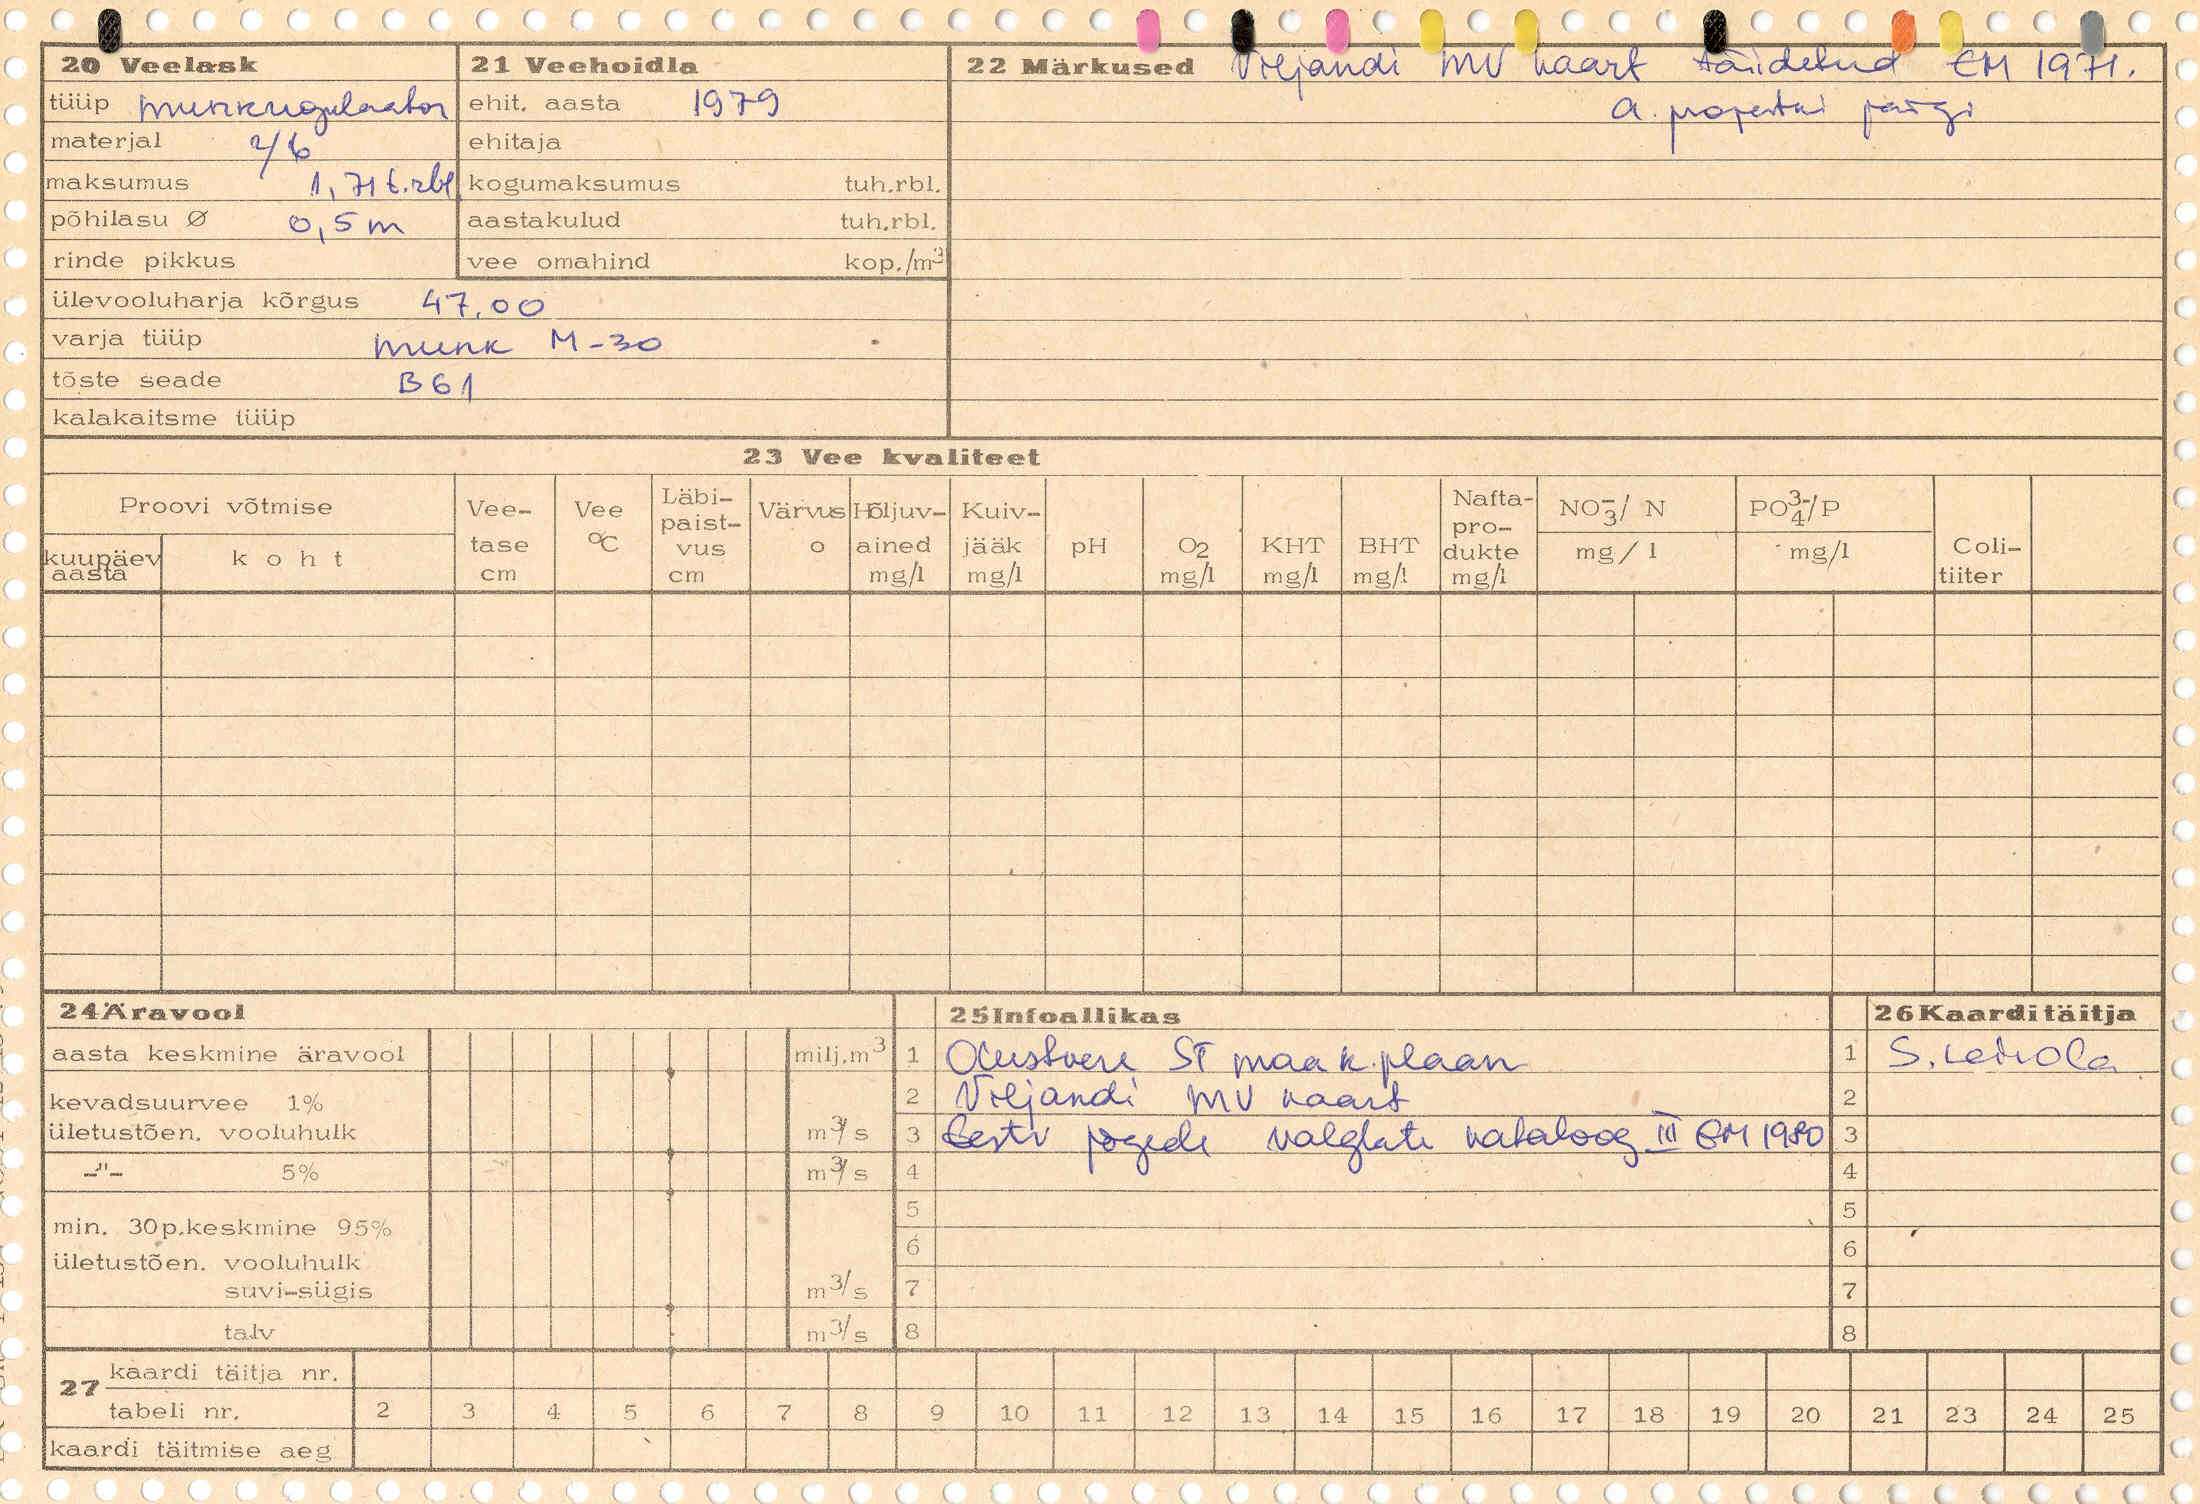 20 Veelask
tüüp munkregulaator
materjal r/b
maksumus 1,71 t.rbl
põhilasu Ø 0,5 m
rinde pikkus
ülevooluharja kõrgus 47.00
varja tüüp munk M-30
tõste seade B61
kalakaitsme tüüp
21 Veehoidla
ehit. aasta 1979
ehitaja
kogumaksumus tuh.rbl.
aastakulud tuh.rbl.
vee omahind kop./m³
22 Märkused Viljandi MV kaart täidetud EM 1971.
a. projekti järgi
23 Vee kvaliteet
Proovi võtmise
kuupäev aasta
koht
Vee-tase cm
Vee °C
Läbi-paist-vus cm
Värvus o
Hõljuv-ained mg/l
Kuiv-jääk mg/l
pH
O2 mg/l
KHT mg/l
BHT mg/l
Nafta-pro-dukte mg/l
NO₃⁻/ N mg/l
PO₄³⁻/P mg/l
Coli-tiiter
24 Äravool
aasta keskmine äravool milj.m³
kevadsuurvee 1%
ületustõen. vooluhulk m³/s
-"- 5% m³/s
min. 30p.keskmine 95%
ületustõen. vooluhulk
suvi-sügis m³/s
talv m³/s
25 Infoallikas
1 Olustvere ST maak.plaan
2 Viljandi MV kaart
3 Eesti jõgede valglate kataloog III EM 1980
4
5
6
7
8
26 Kaardi täitja
1 S.
2
3
4
5
6
7
8
27 kaardi täitja nr.
tabeli nr. 2 3 4 5 6 7 8 9 10 11 12 13 14 15 16 17 18 19 20 21 23 24 25
kaardi täitmise aeg